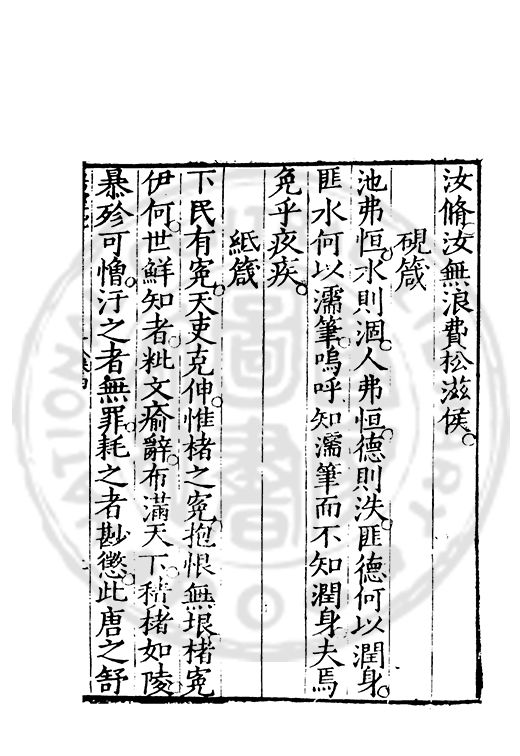 汝脩汝無浪費松滋侯
硯箴
池弗恒水則涸人弗恒德則泆匪德何以潤身
匪水何以濡筆嗚呼知濡筆而不知潤身夫焉
免乎疢疾
紙箴
下民有寃天吏克伸惟楮之寃抱恨無垠楮寃
伊何世鮮知者紕文瘉辭布滿天下積楮如陵
暴殄可憎汙之者無罪耗之者尠懲此唐之舒